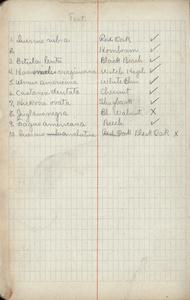 Test.
1. Quercus rubra Red Oak ✓
2. Hornbeam ✓
3. Betula lenta Black Birch ✓
4. Hamamelis virginiana Witch Hazel ✓
5. Ulmus americana White Elm ✓
6. Castanea dentata Chesnut ✓
7. Hickoria ovata Shagbark ✓
8. Juglans nigra Bl. Walnut X
9. Fagus americana Beech ✓
10. Quercus velutina Black Oak X